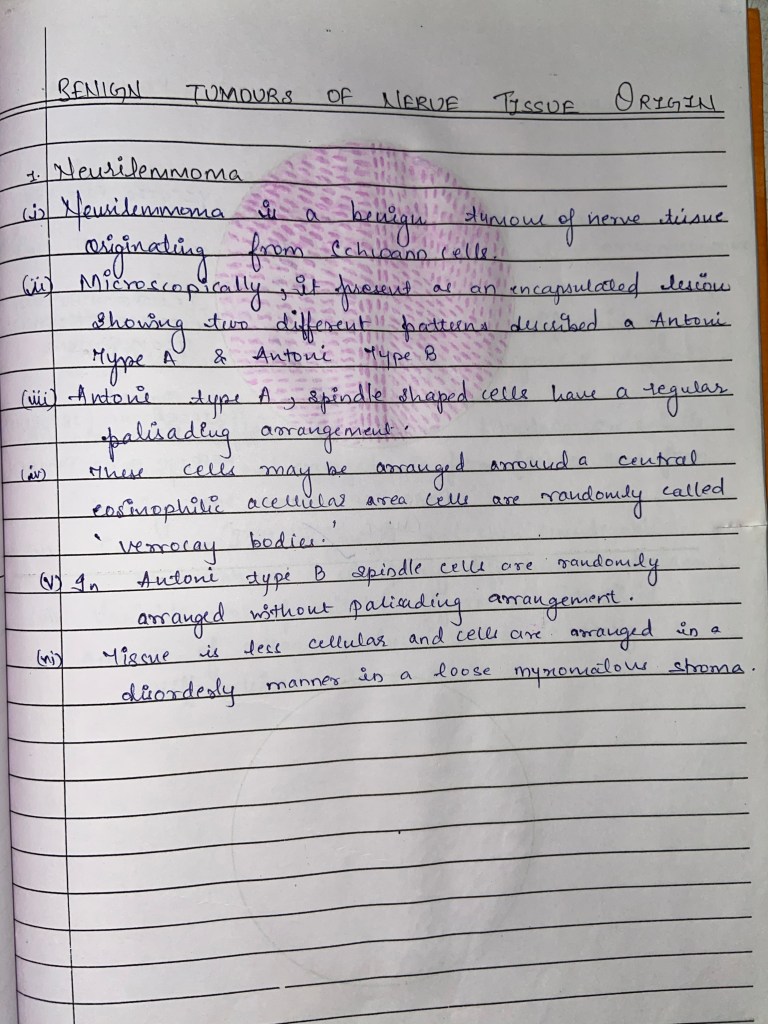 BENIGN TUMOURS OF NERVE TISSUE ORIGIN
1. Neurilemmoma
(i) Neurilemmoma is a benign tumour of nerve tissue
originating from Schwann cells.
(ii) Microscopically, it present as an encapsulated lesion
showing two different patterns described a Antoni
Type A & Antoni Type B
(iii) Antoni type A, spindle shaped cells have a regular
palisading arrangement.
(iv) These cells may be arranged arround a central
eosinophilic acellular area cells are randomly called
'verrocay bodies.'
(v) In Antoni type B spindle cells are randomly
arranged without palisading arrangement.
(vi) Tissue is less cellular and cells are arranged in a
disorderly manner in a loose myxomatous stroma.